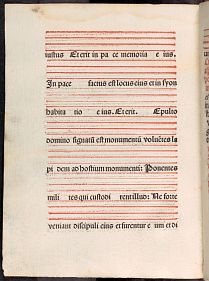 iustus Et erit in pa ce memoria e ius.
In pace factus est locus eius et in syon
habita tio e ius. Et erit. Sepulto
domino signatū est monumentū voluētes la
pi dem ad hostium monumenti: Ponentes
mili tes qui custodi rent illud: Ne forte
veniant discipuli eius et furentur e um et di